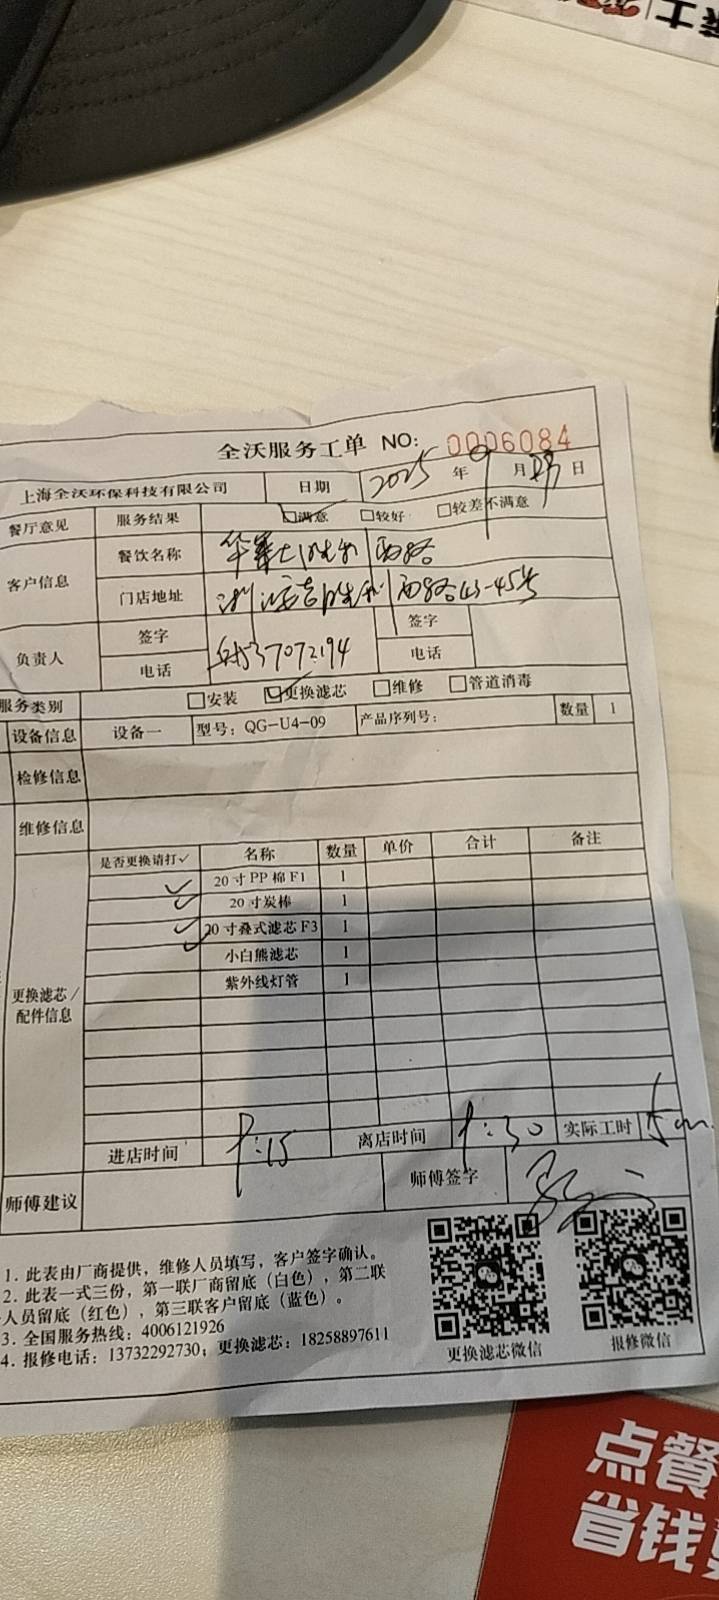 士
全沃服务工单 NO: 0006084
上海全沃环保科技有限公司 日期 2025 年 9 月 日
餐厅意见 服务结果 ☑满意 □较好 □较差不满意
客户信息 餐饮名称 华莱士胜利西路
门店地址 浙江安吉胜利西路43-45号
负责人 签字 签字
电话 37072194 电话
服务类别 □安装 ☑更换滤芯 □维修 □管道消毒
设备信息 设备一 型号: QG-U4-09 产品序列号: 数量 1
检修信息
维修信息
更换滤芯/配件信息 是否更换请打✓ 名称 数量 单价 合计 备注
✓ 20寸PP棉F1 1
✓ 20寸炭棒 1
✓ 20寸叠式滤芯F3 1
✓ 小白熊滤芯 1
紫外线灯管 1
进店时间 9:15 离店时间 9:30 实际工时 15m
师傅建议 师傅签字
1. 此表由厂商提供，维修人员填写，客户签字确认。
2. 此表一式三份，第一联厂商留底（白色），第二联
人员留底（红色），第三联客户留底（蓝色）。
3. 全国服务热线: 4006121926
4. 报修电话: 13732292730; 更换滤芯: 18258897611
更换滤芯微信 报修微信
点餐
省钱